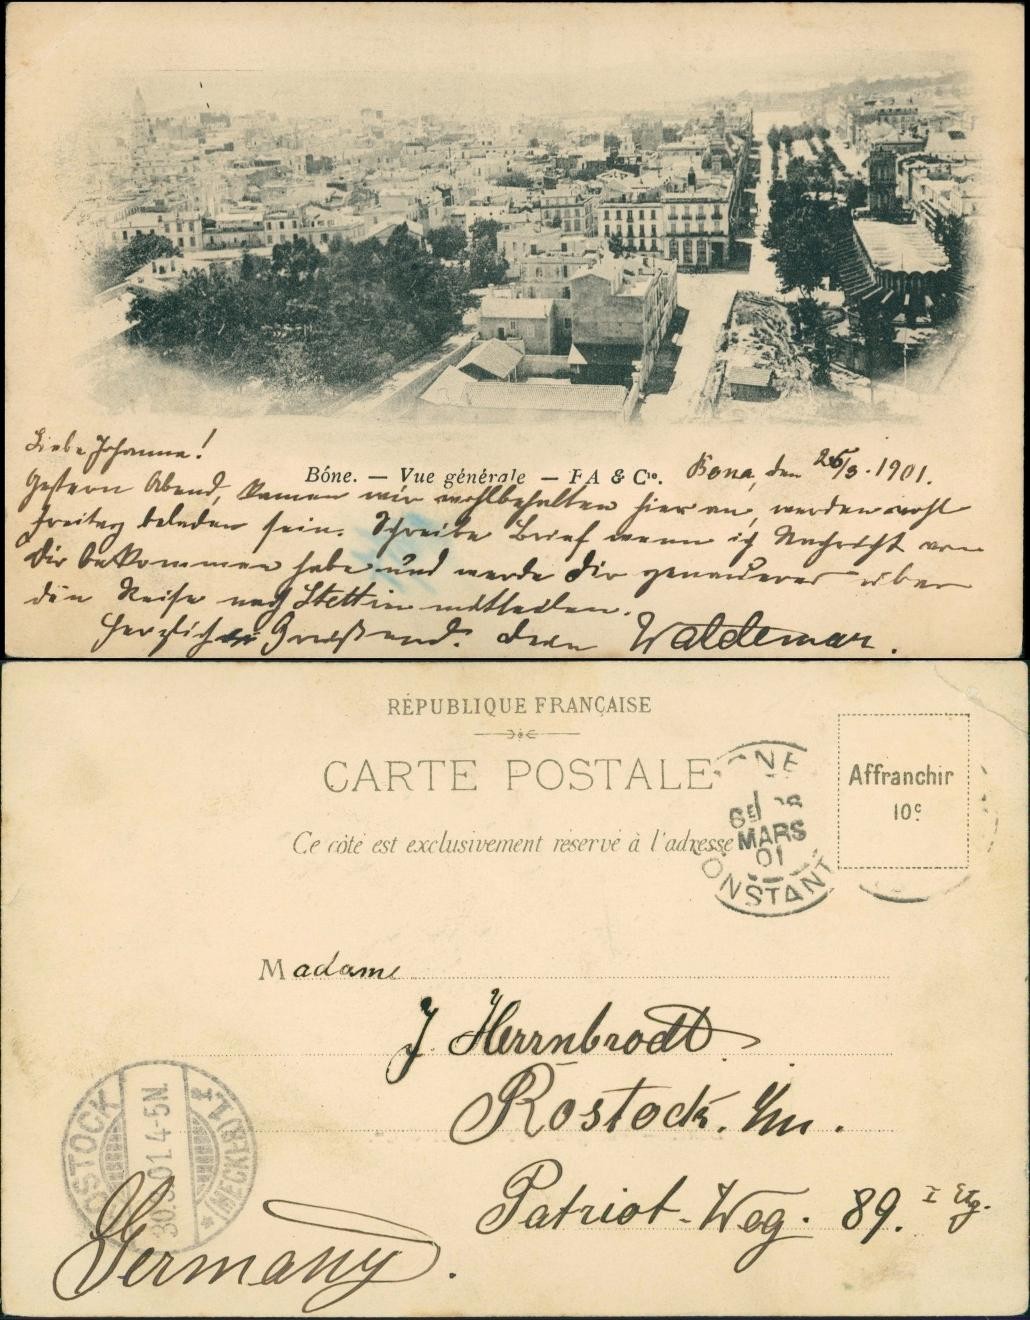 Liebe Johanna!
Bône. — Vue générale — FA & Cie.
Bona, den 26/3. 1901.
Gestern Abend, kamen wir wohlbehalten hier an, werden wohl
Freitag beladen sein. Schreibe Brief wenn ich Nachricht von
Dir bekommen habe und werde Dir genaueres über
die Reise nach Stettin mitteilen.
Herzlich Grüßend. Dein Waldemar.
RÉPUBLIQUE FRANÇAISE
CARTE POSTALE
Affranchir
10c.
Ce côté est exclusivement réservé à l'adresse
BONE
MARS
01
CONSTANT
Madame
J Herrnbrodt
Rostock. i/m.
Patriot-Weg. 89. I Etg.
Germany.
ROSTOCK
30.3.01.4-5N.
*1 (MECKLB) f